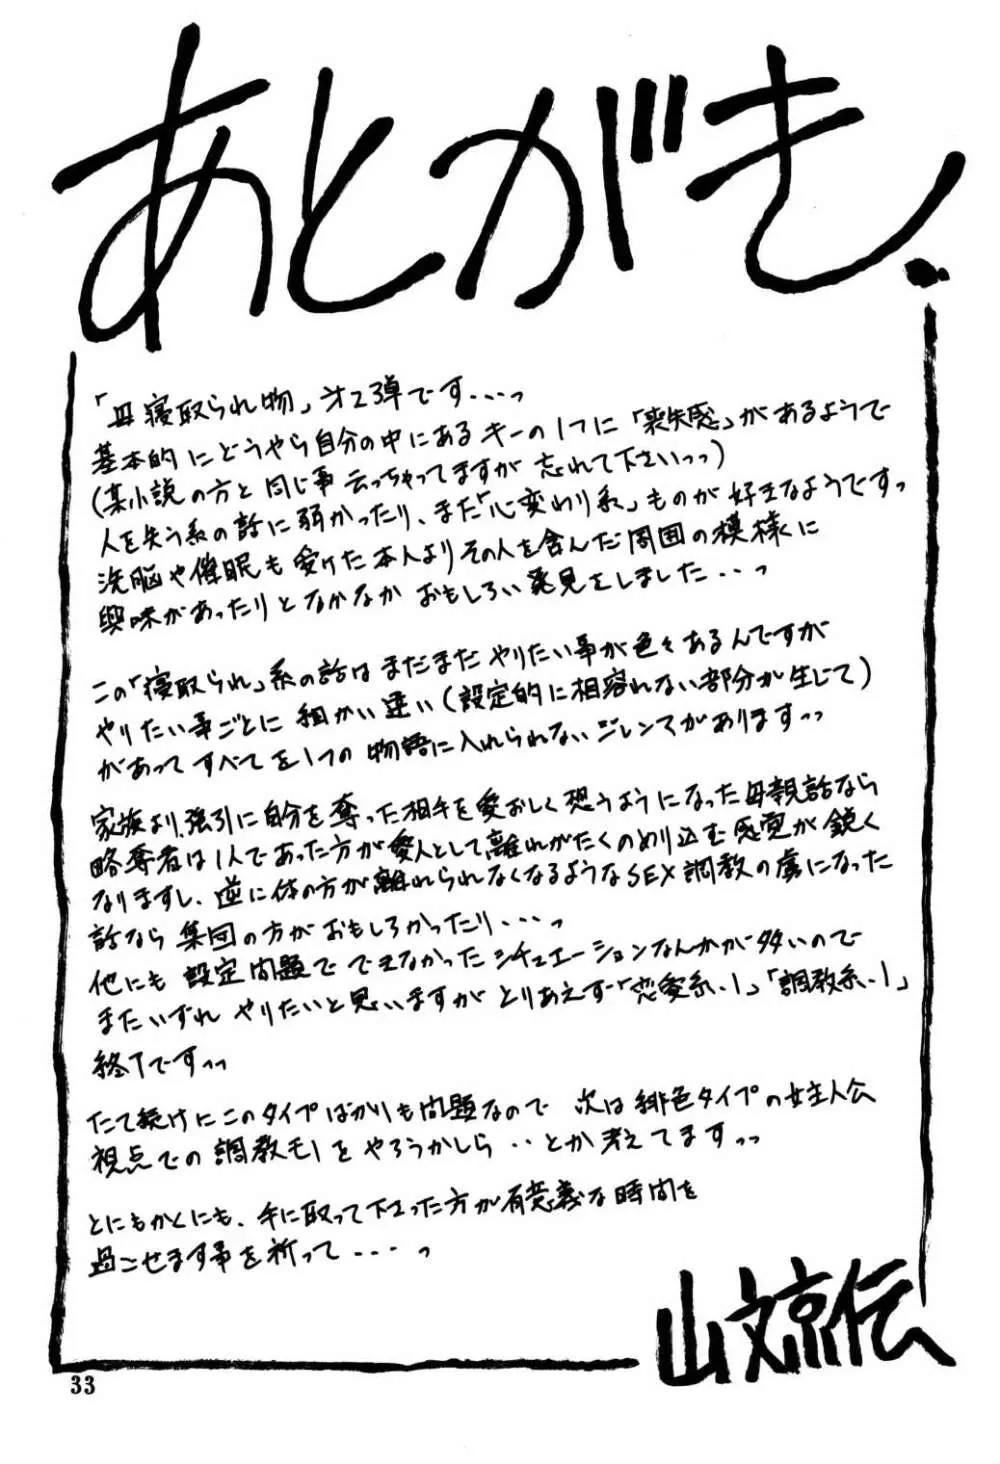 あとがき.
「母寝取られ物」才23弾です...っ
基本的にどうやら自分の中にあるキーの1つに「喪失感」があるようで
(某小説の方と同じ事云っちゃってますが忘れて下さいっっ)
人を失う系の話に弱かったり、また「心変わり系」ものが好きなようですっ
洗脳や催眠も受けた本人よりその人を含んだ周囲の模様に
興味があったりとなかなかおもしろい発見をしました...っ
この「寝取られ」系の話はまだまだやりたい事が色々あるんですが
やりたい事ごとに細かい違い(設定的に相容れない部分が生じて)
があってすべてを1つの物語に入れられないジレンマがありますっっ
家族より、強引に自分を奪った相手を愛おしく想うようになった母親話なら
略奪者は1人であった方が愛人として離れがたくのめり込む感覚が鋭く
なりますし、逆に体の方が離れられなくなるようなSEX調教の虜になった
話なら集団の方がおもしろかったり...っ
他にも設定問題でできなかったシチュエーションなんかが多いので
またいずれやりたいと思いますがとりあえず「恋愛系.1」「調教系.1」
終了ですっっ
たて続けにこのタイプばかりも問題なので 次は緋色タイプの女主人公
視点での調教モノをやろうかしら..とか考えてますっっ
とにもかくにも、手に取って下さった方が有意義な時間を
過ごせます事を祈って....っ
山文京伝
33